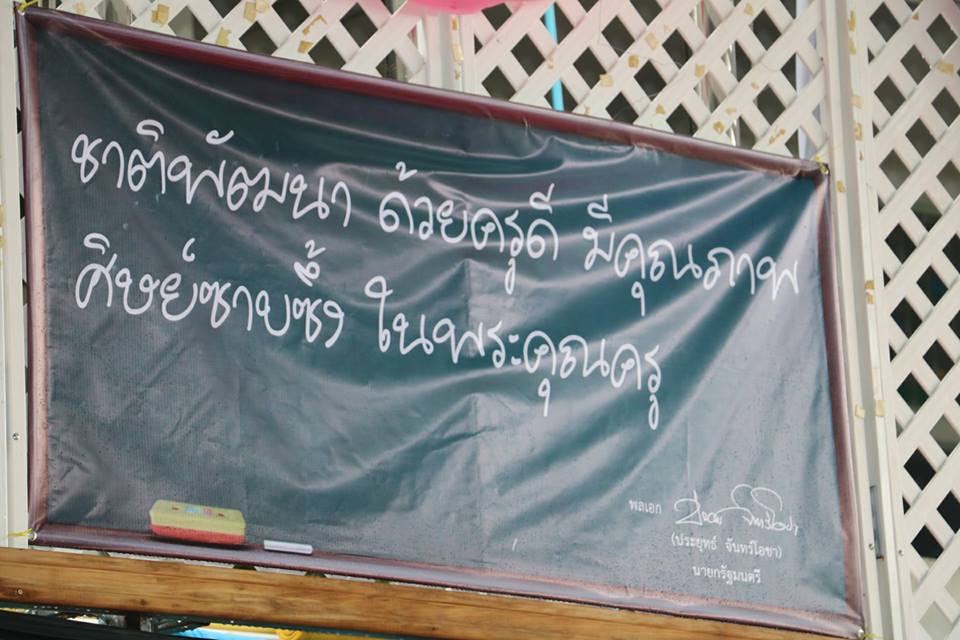 ชาติพัฒนา ด้วยครูดี มีคุณภาพ
ศิษย์ซาบซึ้ง ในพระคุณครู
พลเอก
(ประยุทธ์ จันทร์โอชา)
นายกรัฐมนตรี